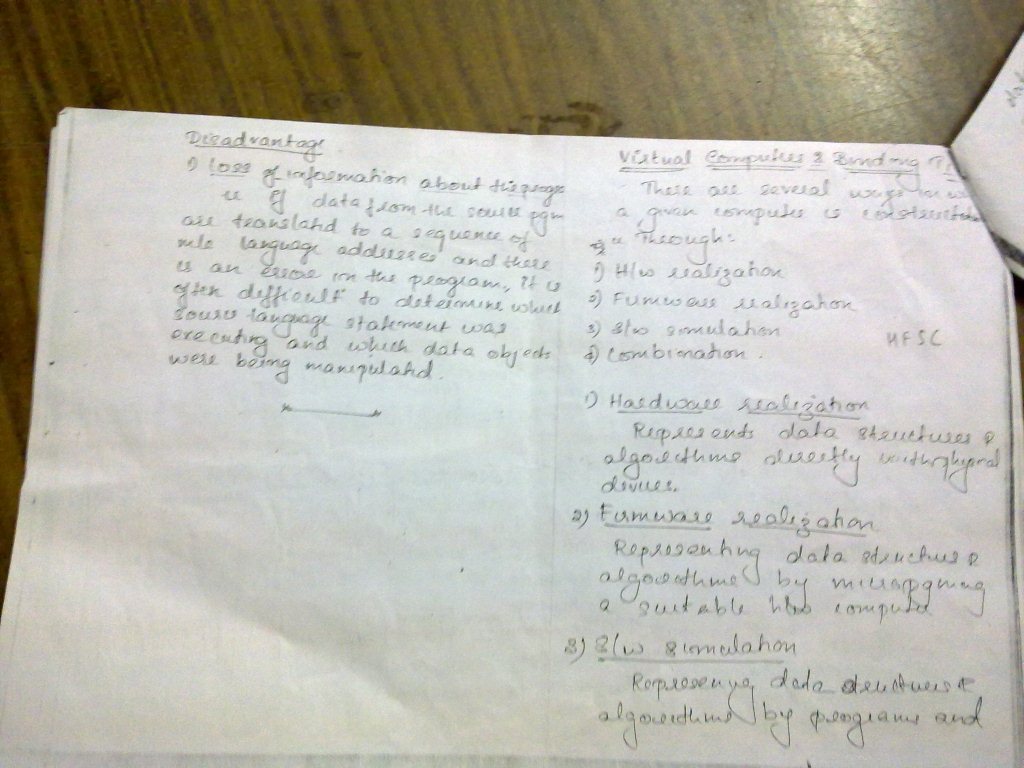 Disadvantage
1) Loss of information about the progr
ie If data from the source pgm
are translatd to a sequence of
m/c language addresses and there
is an error in the program, It is
often difficult to determine which
source language statement was
executing and which data objects
were being manipulatd.
Virtual Computers & Binding Ti
There are several ways in w
a given computer is constructed
ie Through:
1) H/w realization
2) Firmware realization
3) S/w simulation
4) Combination.
HFSC
1) Hardware realization
Represents data structures &
algorithms directly with physical
devices.
2) Firmware realization
Representing data structures &
algorithms by micropgming
a suitable h/w computer
3) S/w simulation
Represeng data structures &
algorithms by programs and